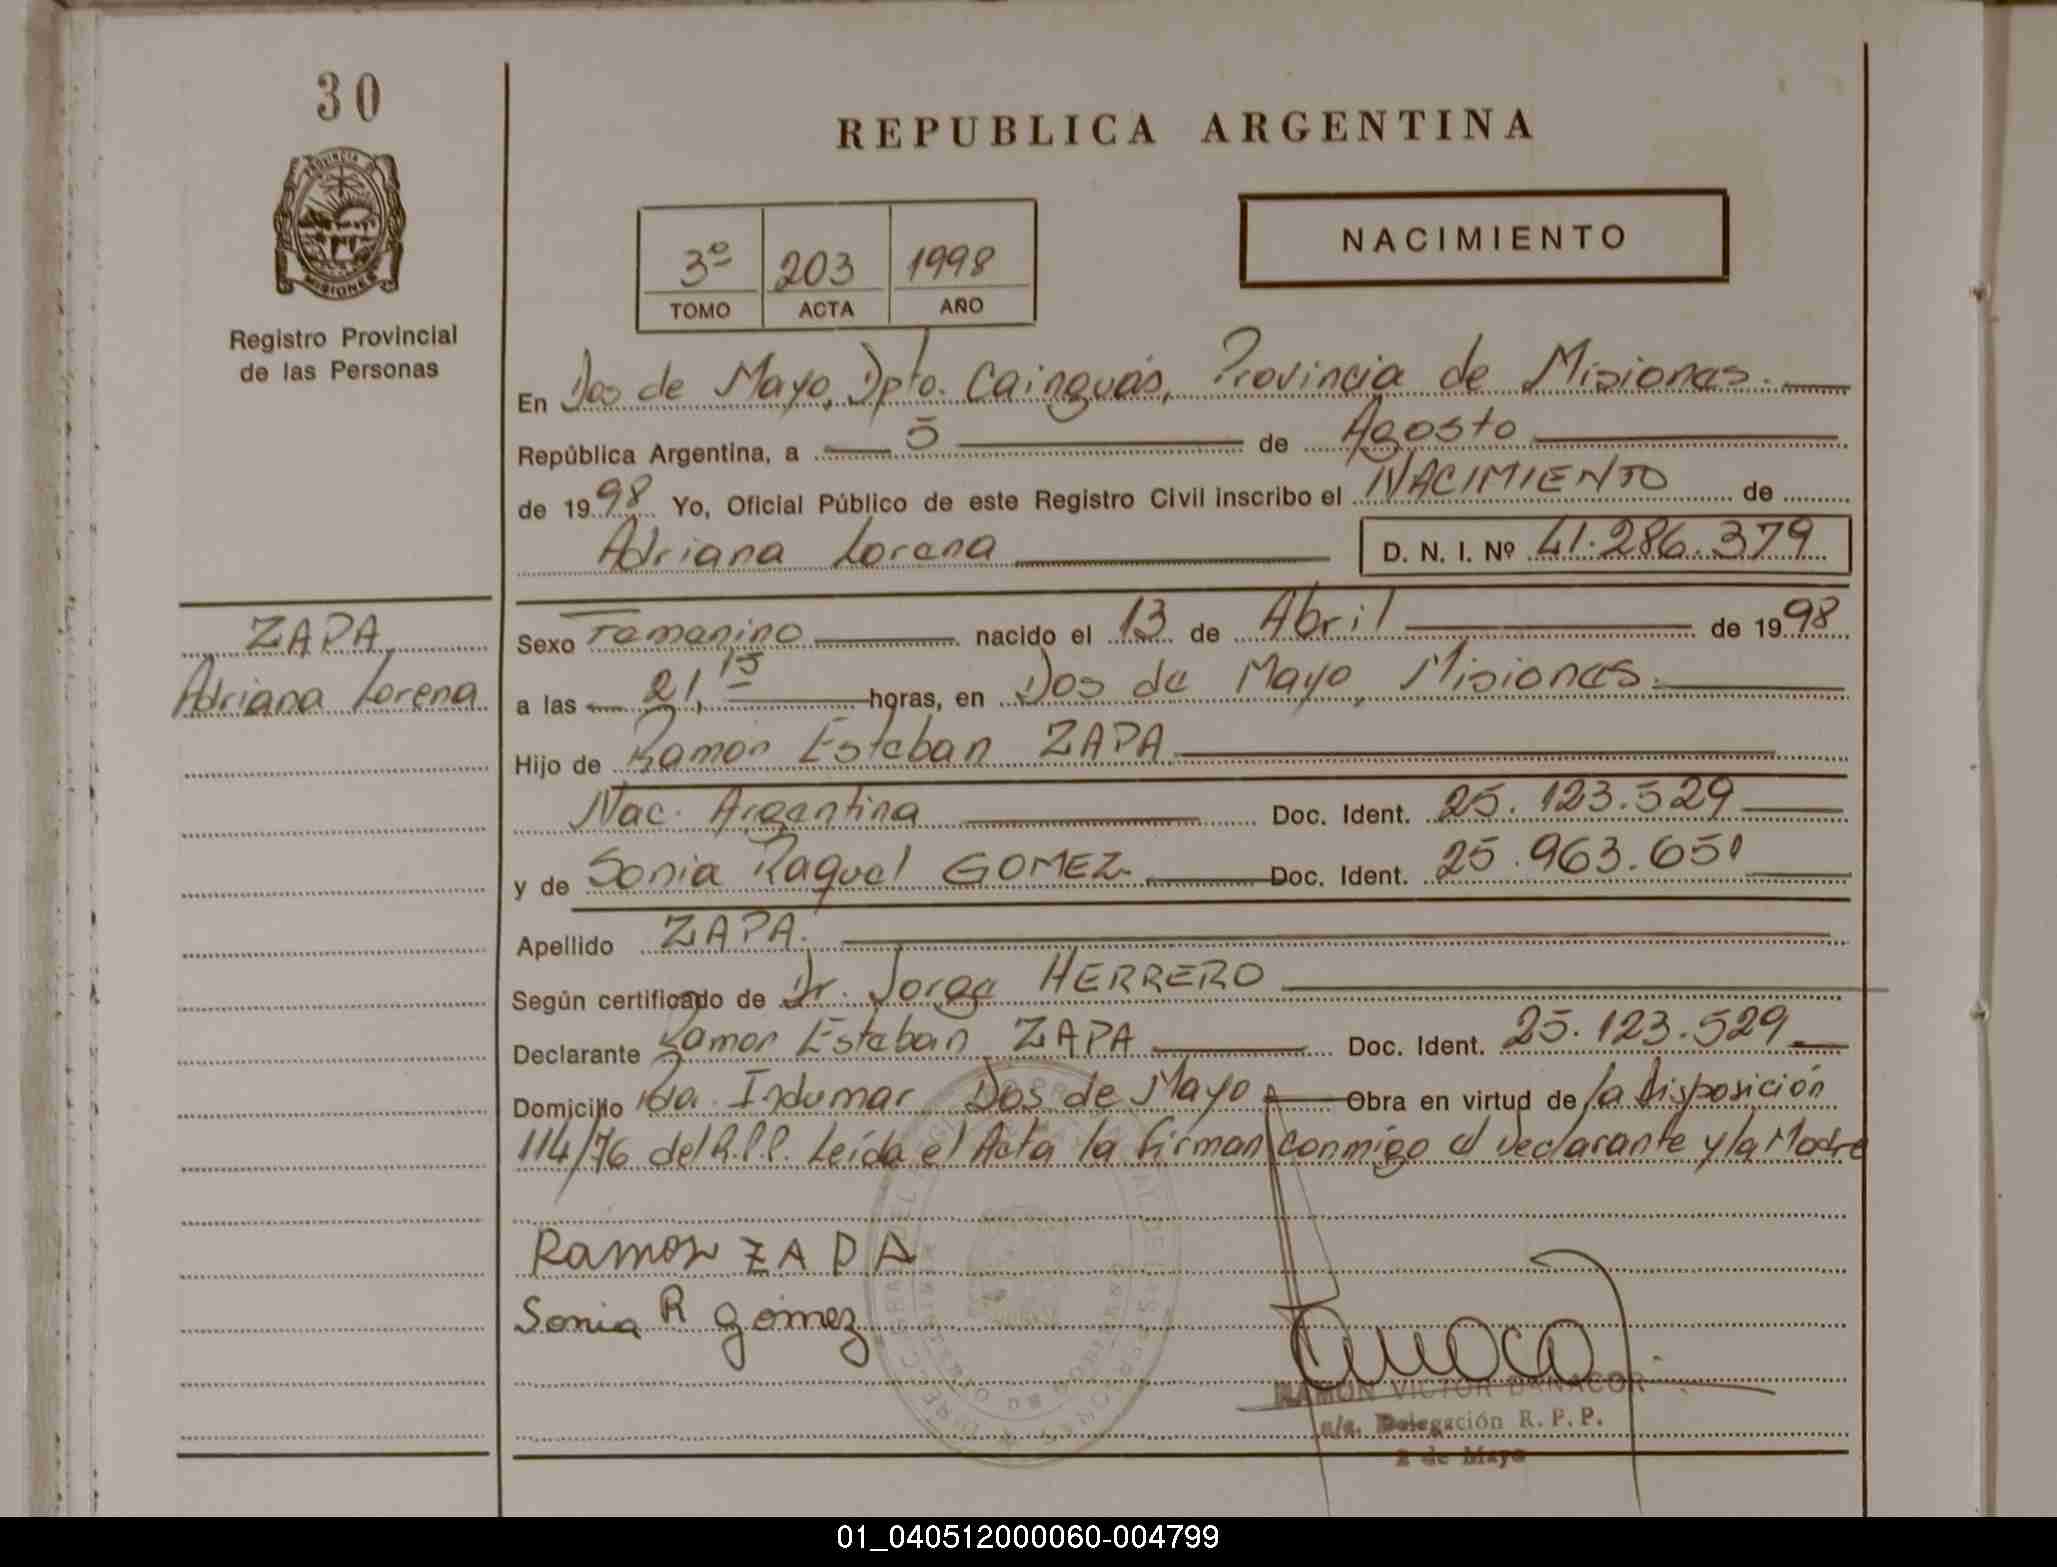 30
PROVINCIA DE
MISIONES
Registro Provincial
de las Personas
REPUBLICA ARGENTINA
3º 203 1998
TOMO ACTA AÑO
NACIMIENTO
En Dos de Mayo, Dpto. Cainguás, Provincia de Misiones.
República Argentina, a 5 de Agosto
de 1998 Yo, Oficial Público de este Registro Civil inscribo el NACIMIENTO de
Adriana Lorena D. N. I. Nº 41.286.379
ZAPA
Adriana Lorena
Sexo Femenino nacido el 13 de Abril de 1998
a las 21,15 horas, en Dos de Mayo, Misiones.
Hijo de Ramon Esteban ZAPA
Nac. Argentina Doc. Ident. 25.123.529
y de Sonia Raquel GOMEZ. Doc. Ident. 25.963.651
Apellido ZAPA.
Según certificado de Dr. Jorge HERRERO
Declarante Ramon Esteban ZAPA Doc. Ident. 25.123.529
Domicilio Indumar Dos de Mayo Obra en virtud de la Disposición
114/76 del R.P.P. Leída el Acta la firman conmigo el declarante y la Madre
Ramon ZAPA
Sonia R gómez
RAMON VICTOR
Delegación R. P. P.
2 de Mayo
01_040512000060-004799